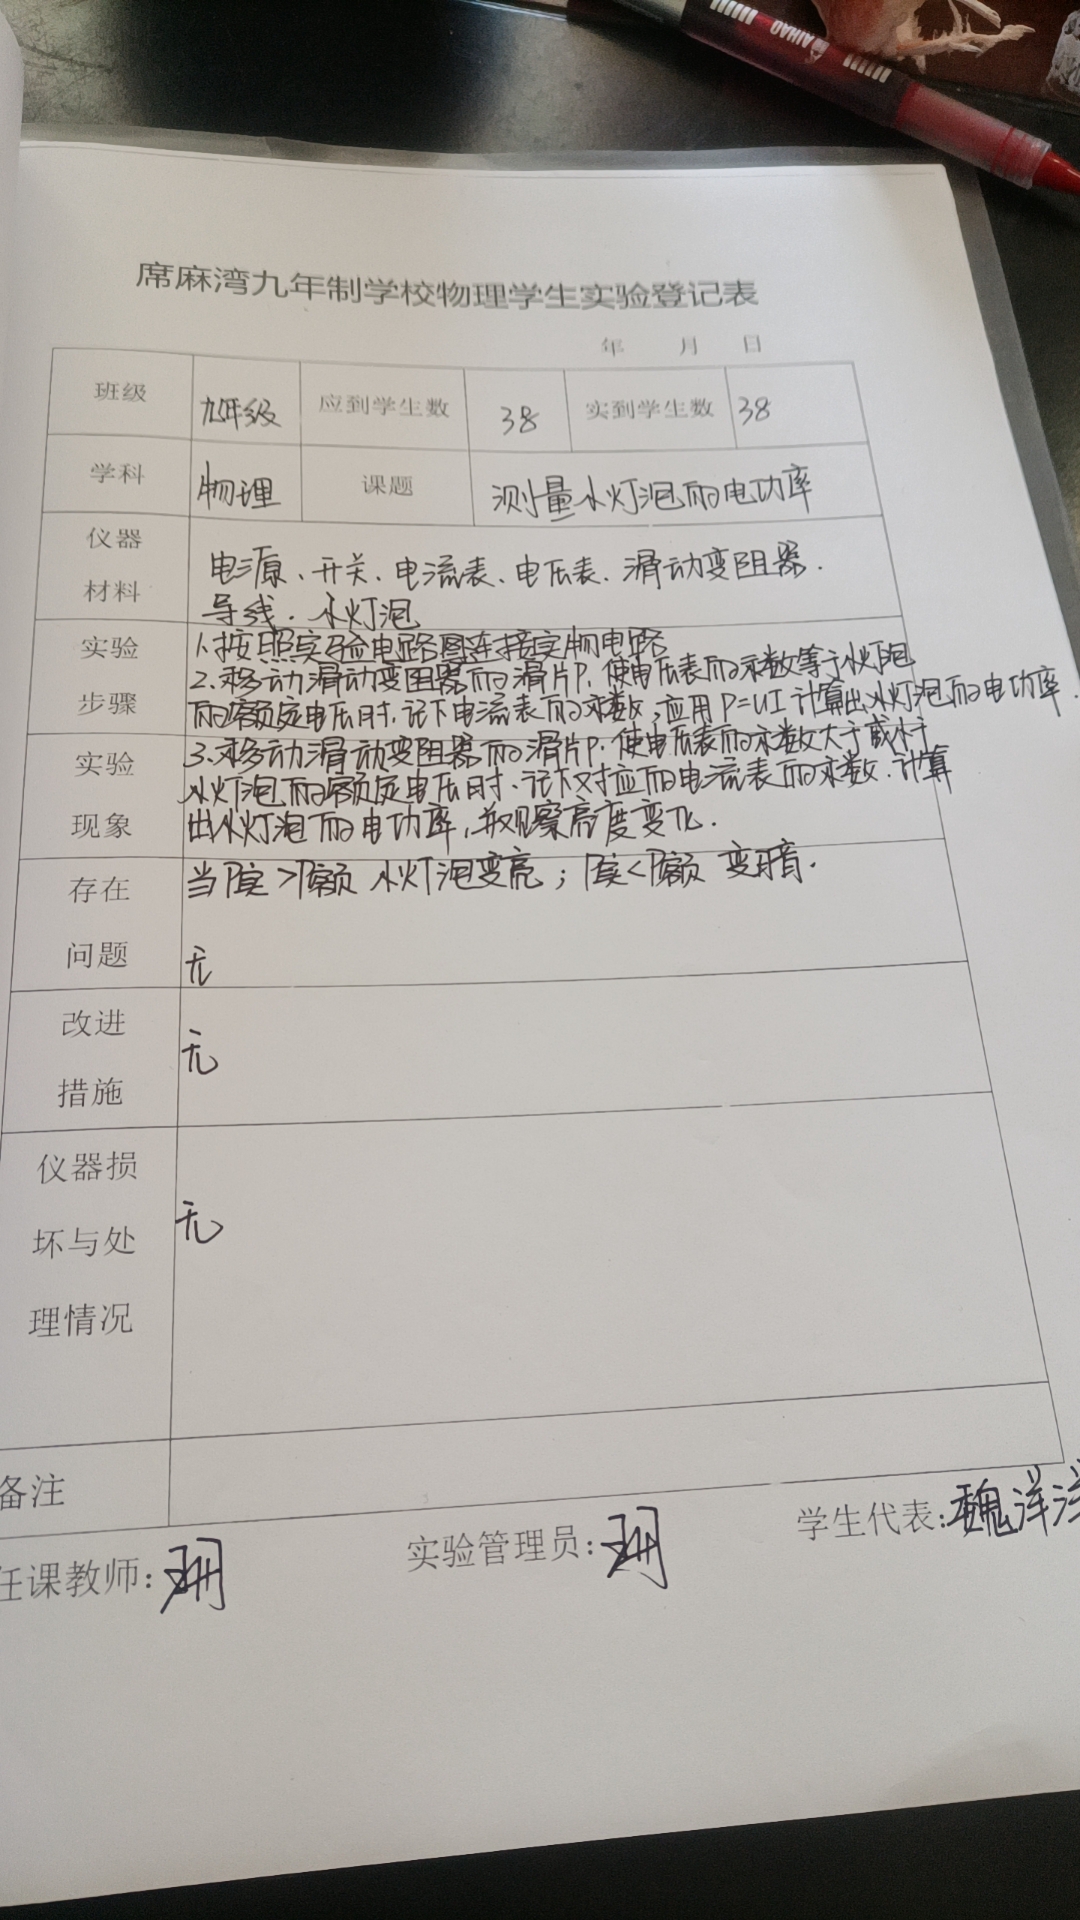 AIHAO
席麻湾九年制学校物理学生实验登记表
年 月 日
班级 九年级 应到学生数 38 实到学生数 38
学科 物理 课题 测量小灯泡的电功率
仪器
材料
电源、开关、电流表、电压表、滑动变阻器.
导线、小灯泡
实验
步骤
1.按照实验电路图连接实物电路
2.移动滑动变阻器的滑片P,使电压表的示数等于小灯泡
的额定电压时,记下电流表的示数,应用P=UI计算出小灯泡的电功率.
实验
现象
3.移动滑动变阻器的滑片P,使电压表的示数大于或小于
小灯泡的额定电压时,记下对应的电流表的示数.计算
出小灯泡的电功率,并观察亮度变化.
存在
问题
当P实>P额 小灯泡变亮;P实<P额 变暗.
无
改进
措施
无
仪器损
坏与处
理情况
无
备注
任课教师: 实验管理员: 学生代表:魏洋洋